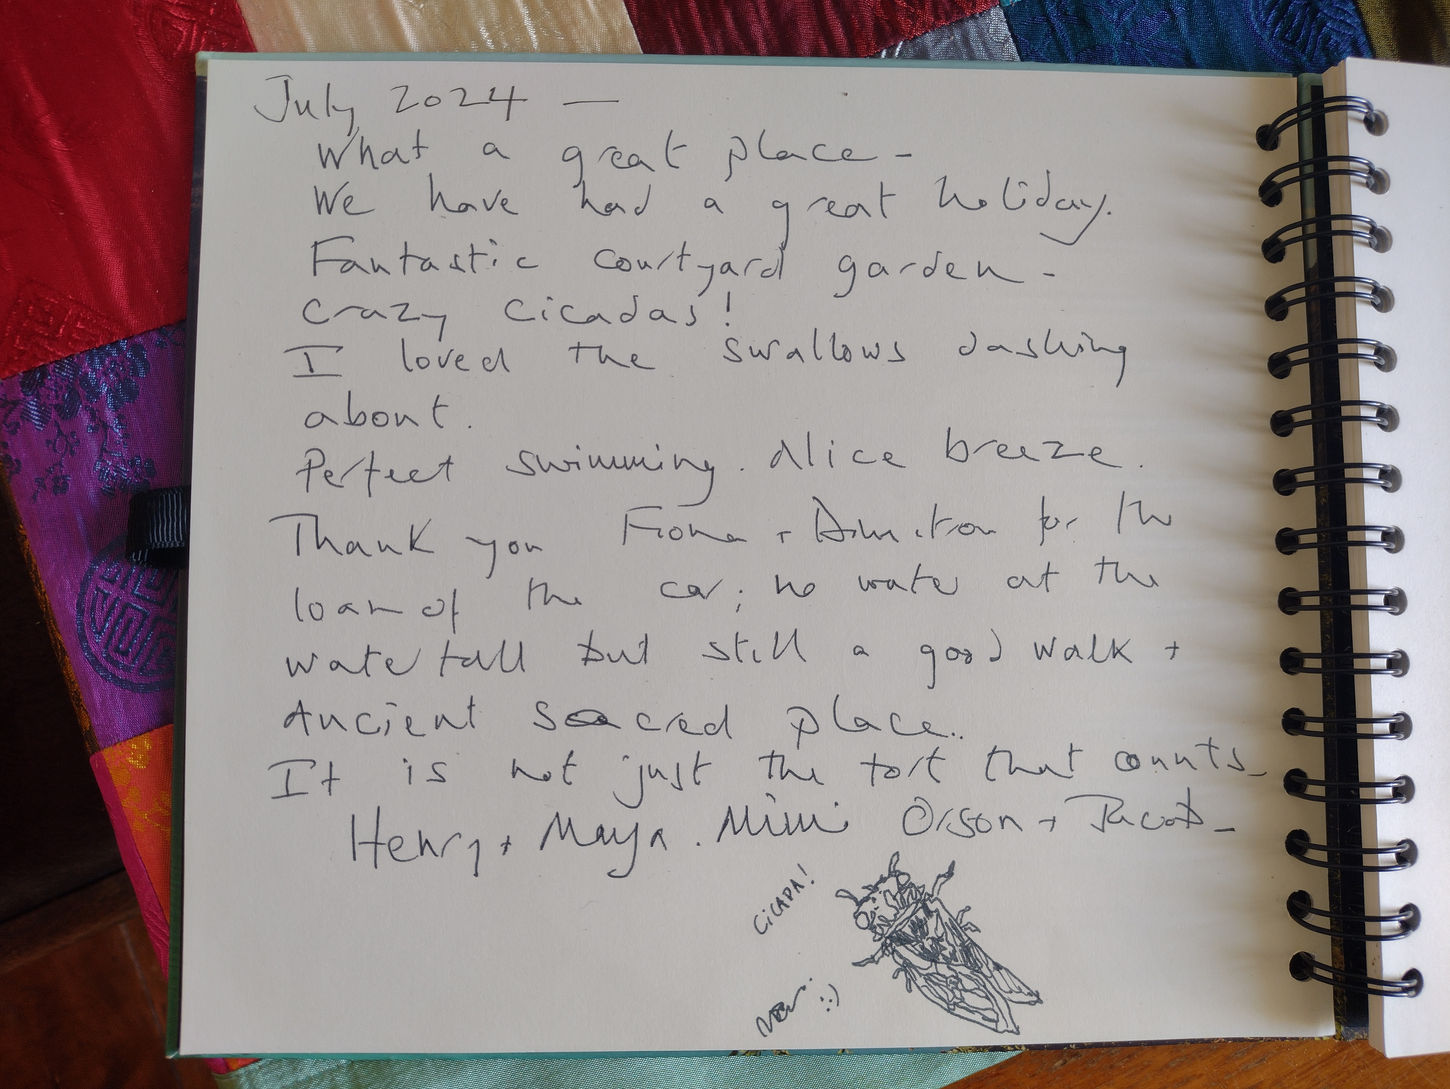 July 2024 —
What a great place -
We have had a great holiday.
Fantastic courtyard garden -
crazy cicadas!
I loved the swallows dashing
about.
Perfect swimming. Nice breeze.
Thank you Fiona + Dimitron for the
loan of the car; no water at the
waterfall but still a good walk +
Ancient sacred place.
It is not just the fort that counts -
Henry + Maya. Mimi Orson + Jacob -
CICADA!
:)